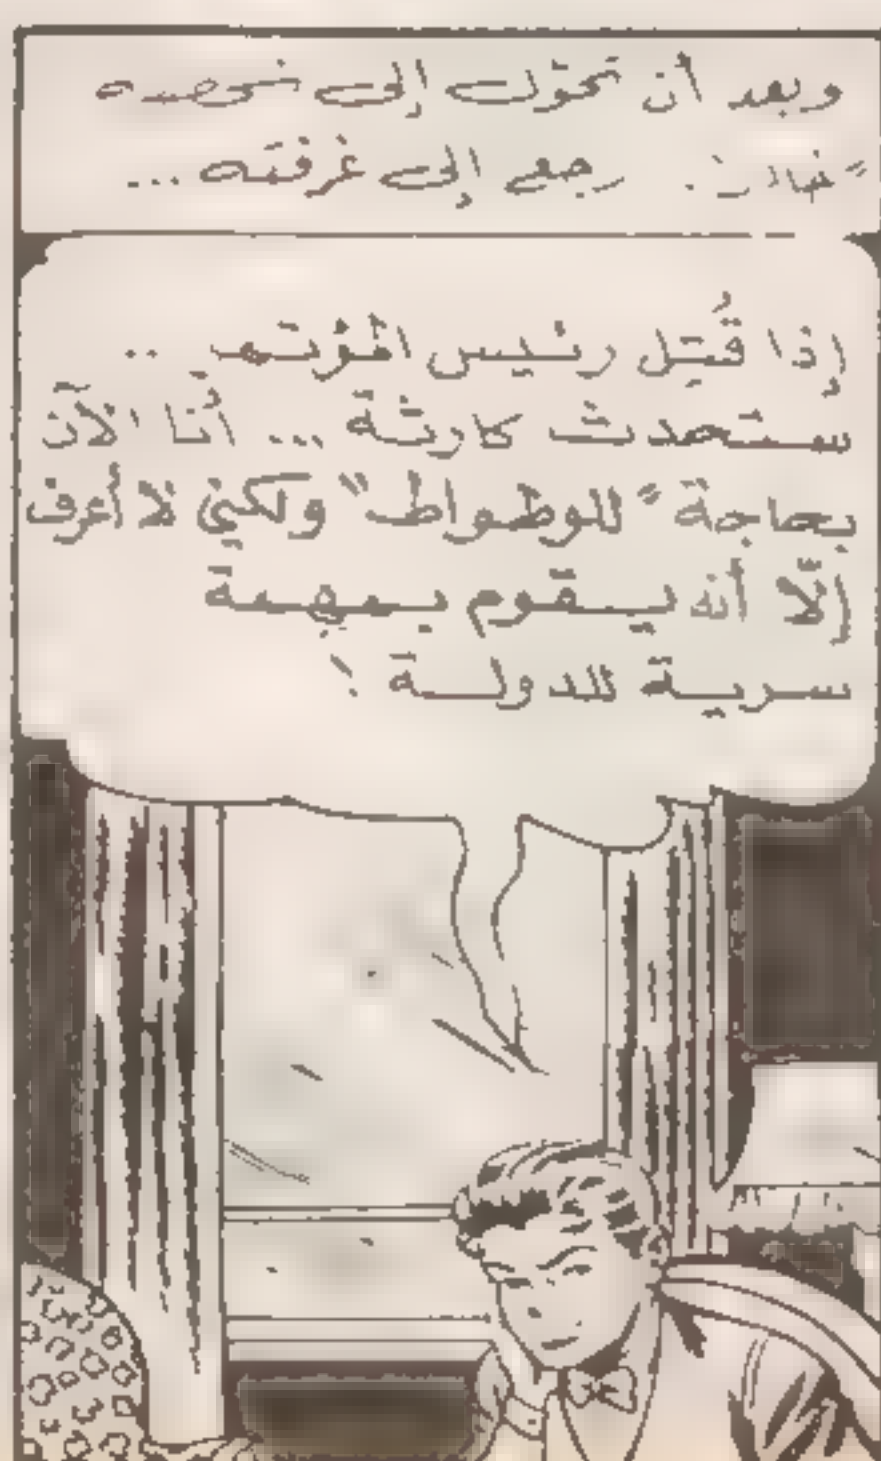 وبعد أن تحوّل إلى شخصه
رجع إلى غرفته ...
إذا قُتِل رئيس المؤتمر ..
ستحدث كارثة ... أنا الآن
بحاجة "للوطواط" ولكني لا أعرف
إلّا أنه يقوم بمهمة
سرية للدولة !